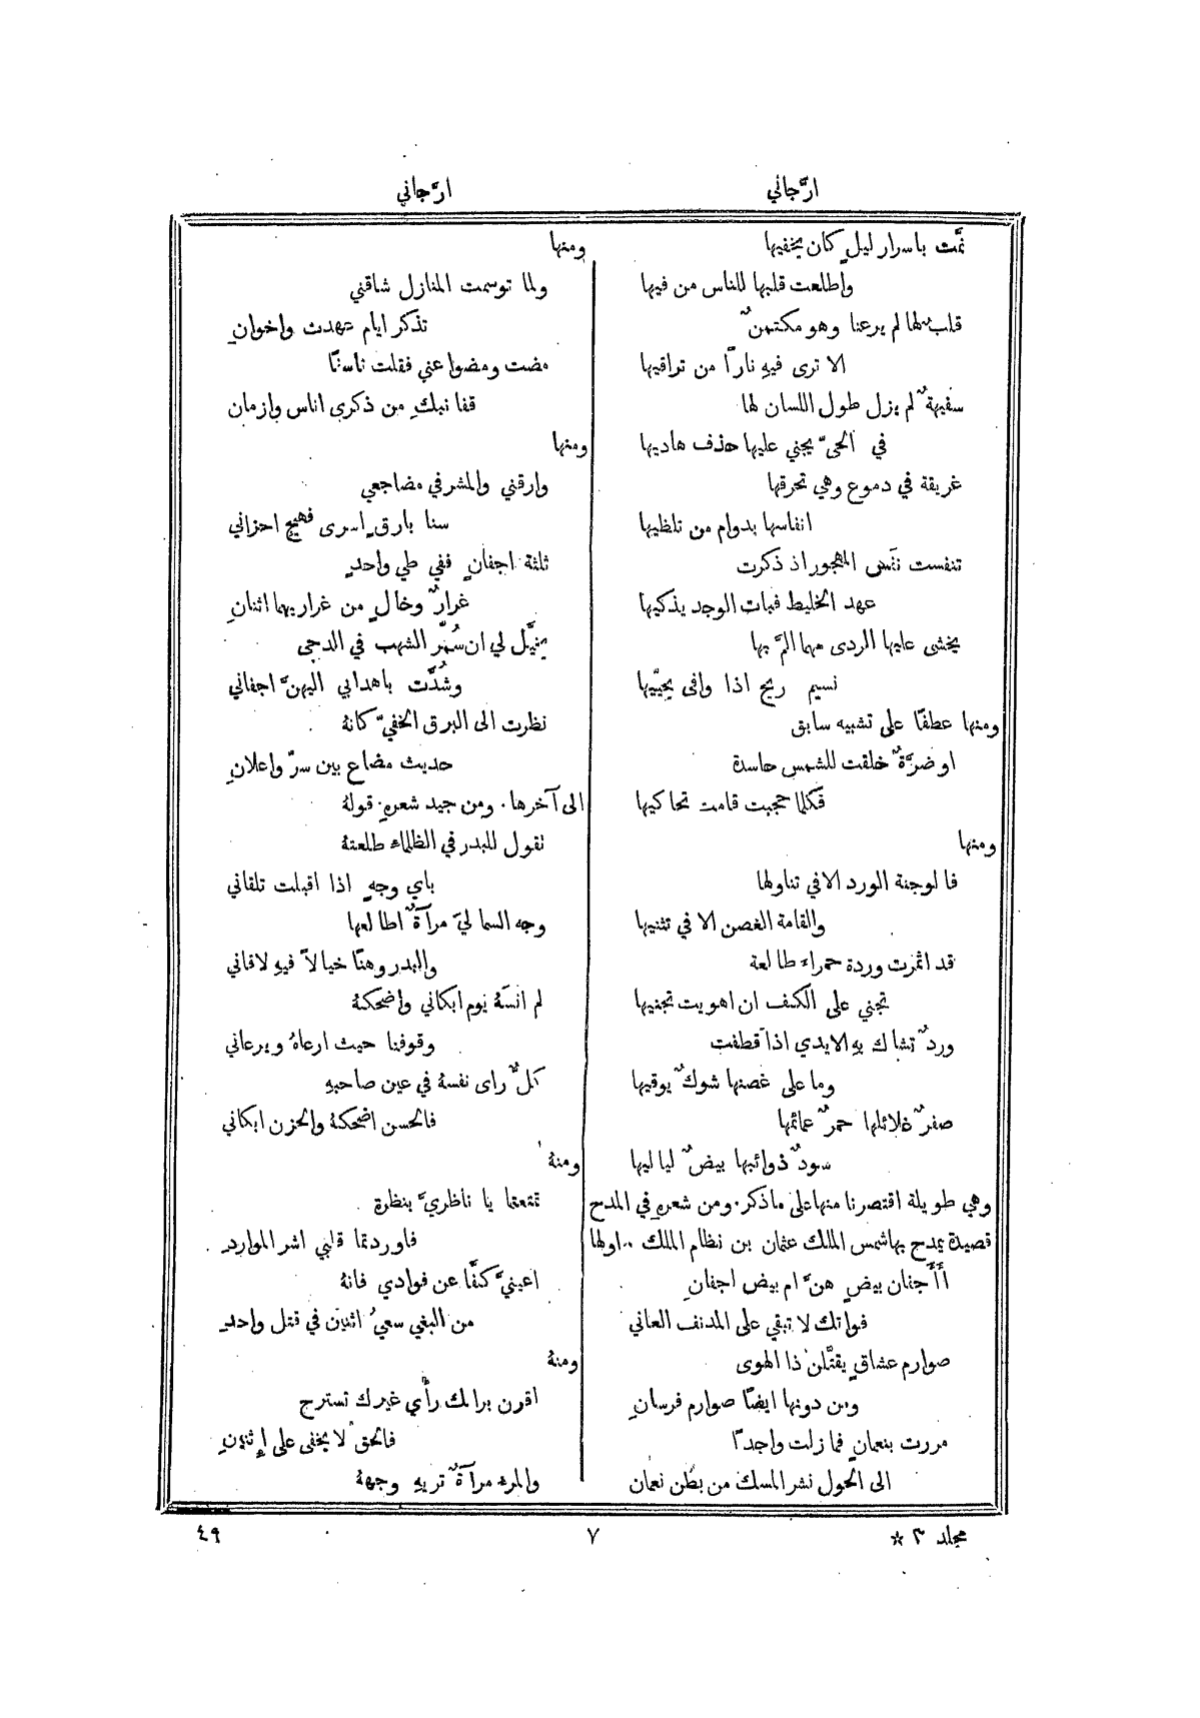 ارَّجاني
ارَّجاني
نمَّت باسرار ليلٍ كان يخفيها
واطلعت قلبها للناس من فيها
قلب لها لم يرعنا وهو مكتمنٌ
الا ترى فيهِ نارًا من تراقيها
سفيهةٌ لم يزل طول اللسان لها
في الحيّ يجني عليها حذف هاديها
غريقة في دموع وهي تحرقها
انفاسها بدوام من تلظيها
تنفست نفَس المهجور اذ ذكرت
عهد الخليط فبات الوجد يذكيها
يخشى عليها الردى مهما المَّ بها
نسيم ريح اذا وافى يحيّيها
ومنها عطفًا على تشبيه سابق
او ضرَّةٌ خلقت للشمس حاسدة
فكلما حجبت قامت تحاكيها
ومنها
فما لوجنة الورد الا في تناولها
والقامة الغصن الا في تثنيها
قد اثمرت وردة حمراء طالعة
تجني على الكف ان اهويت تجنيها
وردٌ تشاك بهِ الايدي اذا قطفت
وما على غصنها شوكٌ يوقيها
صفرٌ غلائلها حمرٌ عمائمها
سودٌ ذوائبها بيضٌ لياليها
وهي طويلة اقتصرنا منها على ما ذكر. ومن شعرهِ في المدح
قصيدة يمدح بها شمس الملك عثمان بن نظام الملك .. اولها
أَأَجفان بيضٍ هنَّ ام بيض اجفانِ
فواتك لا تبقي على المدنف العاني
صوارم عشاقٍ يقتّلن ذا الهوى
ومن دونها ايضًا صوارم فرسانِ
مررت بنعمانٍ فما زلت واجدًا
الى الحول نشر المسك من بطن نعمان
ومنها
ولما توسمت المنازل شاقني
تذكر ايام عهدت واخوانِ
مضت ومضوا عني فقلت تاسفًا
قفا نبكِ من ذكرى اناس وازمان
ومنها
وارقني والمشرفي مضاجعي
سنا بارقٍ اسرى فهيج احزاني
ثلثة اجفانٍ ففي طي واحدٍ
غرارٌ وخالٍ من غراريهما اثنانِ
يخيَّل لي ان سُمّر الشهب في الدجى
وشُدَّت باهدابي اليهنَّ اجفاني
نظرت الى البرق الخفيّ كانهُ
حديث مضاع بين سرّ واعلانِ
الى آخرها. ومن جيد شعرهِ قولهُ
تقول للبدر في الظلماء طلعتهُ
باي وجهٍ اذا اقبلت تلقاني
وجه السما ليَ مرآةٌ اطالعها
والبدر وهنًا خيالاً فيهِ لاقاني
لم انسَهُ يوم ابكاني واضحكهُ
وقوفنا حيث ارعاهُ ويرعاني
كلٌّ راى نفسهُ في عين صاحبهِ
فالحسن اضحكهُ والحزن ابكاني
ومنهُ
تمتعتما يا ناظريَّ بنظرةٍ
فاوردتما قلبي اشر المواردِ
اعينيَّ كفَّا عن فوادي فانهُ
من البغي سعيُ اثنين في قتل واحدِ
ومنهُ
اقرن برايك رأي غيرك تسترح
فالحق لا يخفى على إِثنينِ
والمرء مرآةٌ تريهِ وجههُ
مجلد ٣ *
٧
٤٩